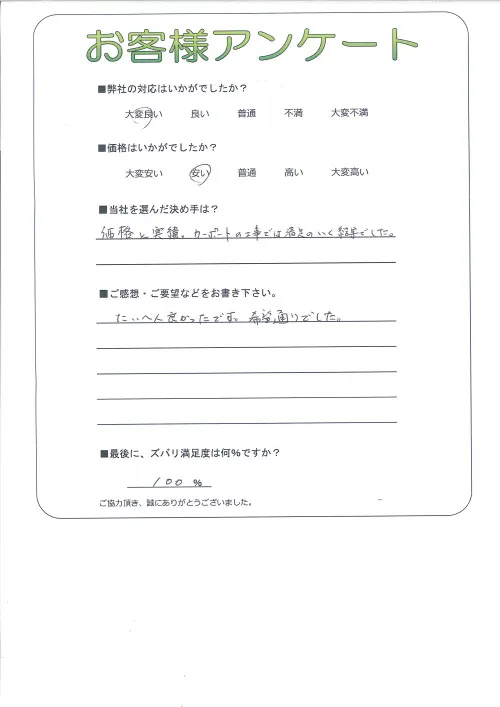 お客様アンケート
■弊社の対応はいかがでしたか？
大変良い 良い 普通 不満 大変不満
■価格はいかがでしたか？
大変安い 安い 普通 高い 大変高い
■当社を選んだ決め手は？
価格と実績。カーポートの工事では満足のいく結果でした。
■ご感想・ご要望などをお書き下さい。
たいへん良かったです。希望通りでした。
■最後に、ズバリ満足度は何%ですか？
100 %
ご協力頂き、誠にありがとうございました。